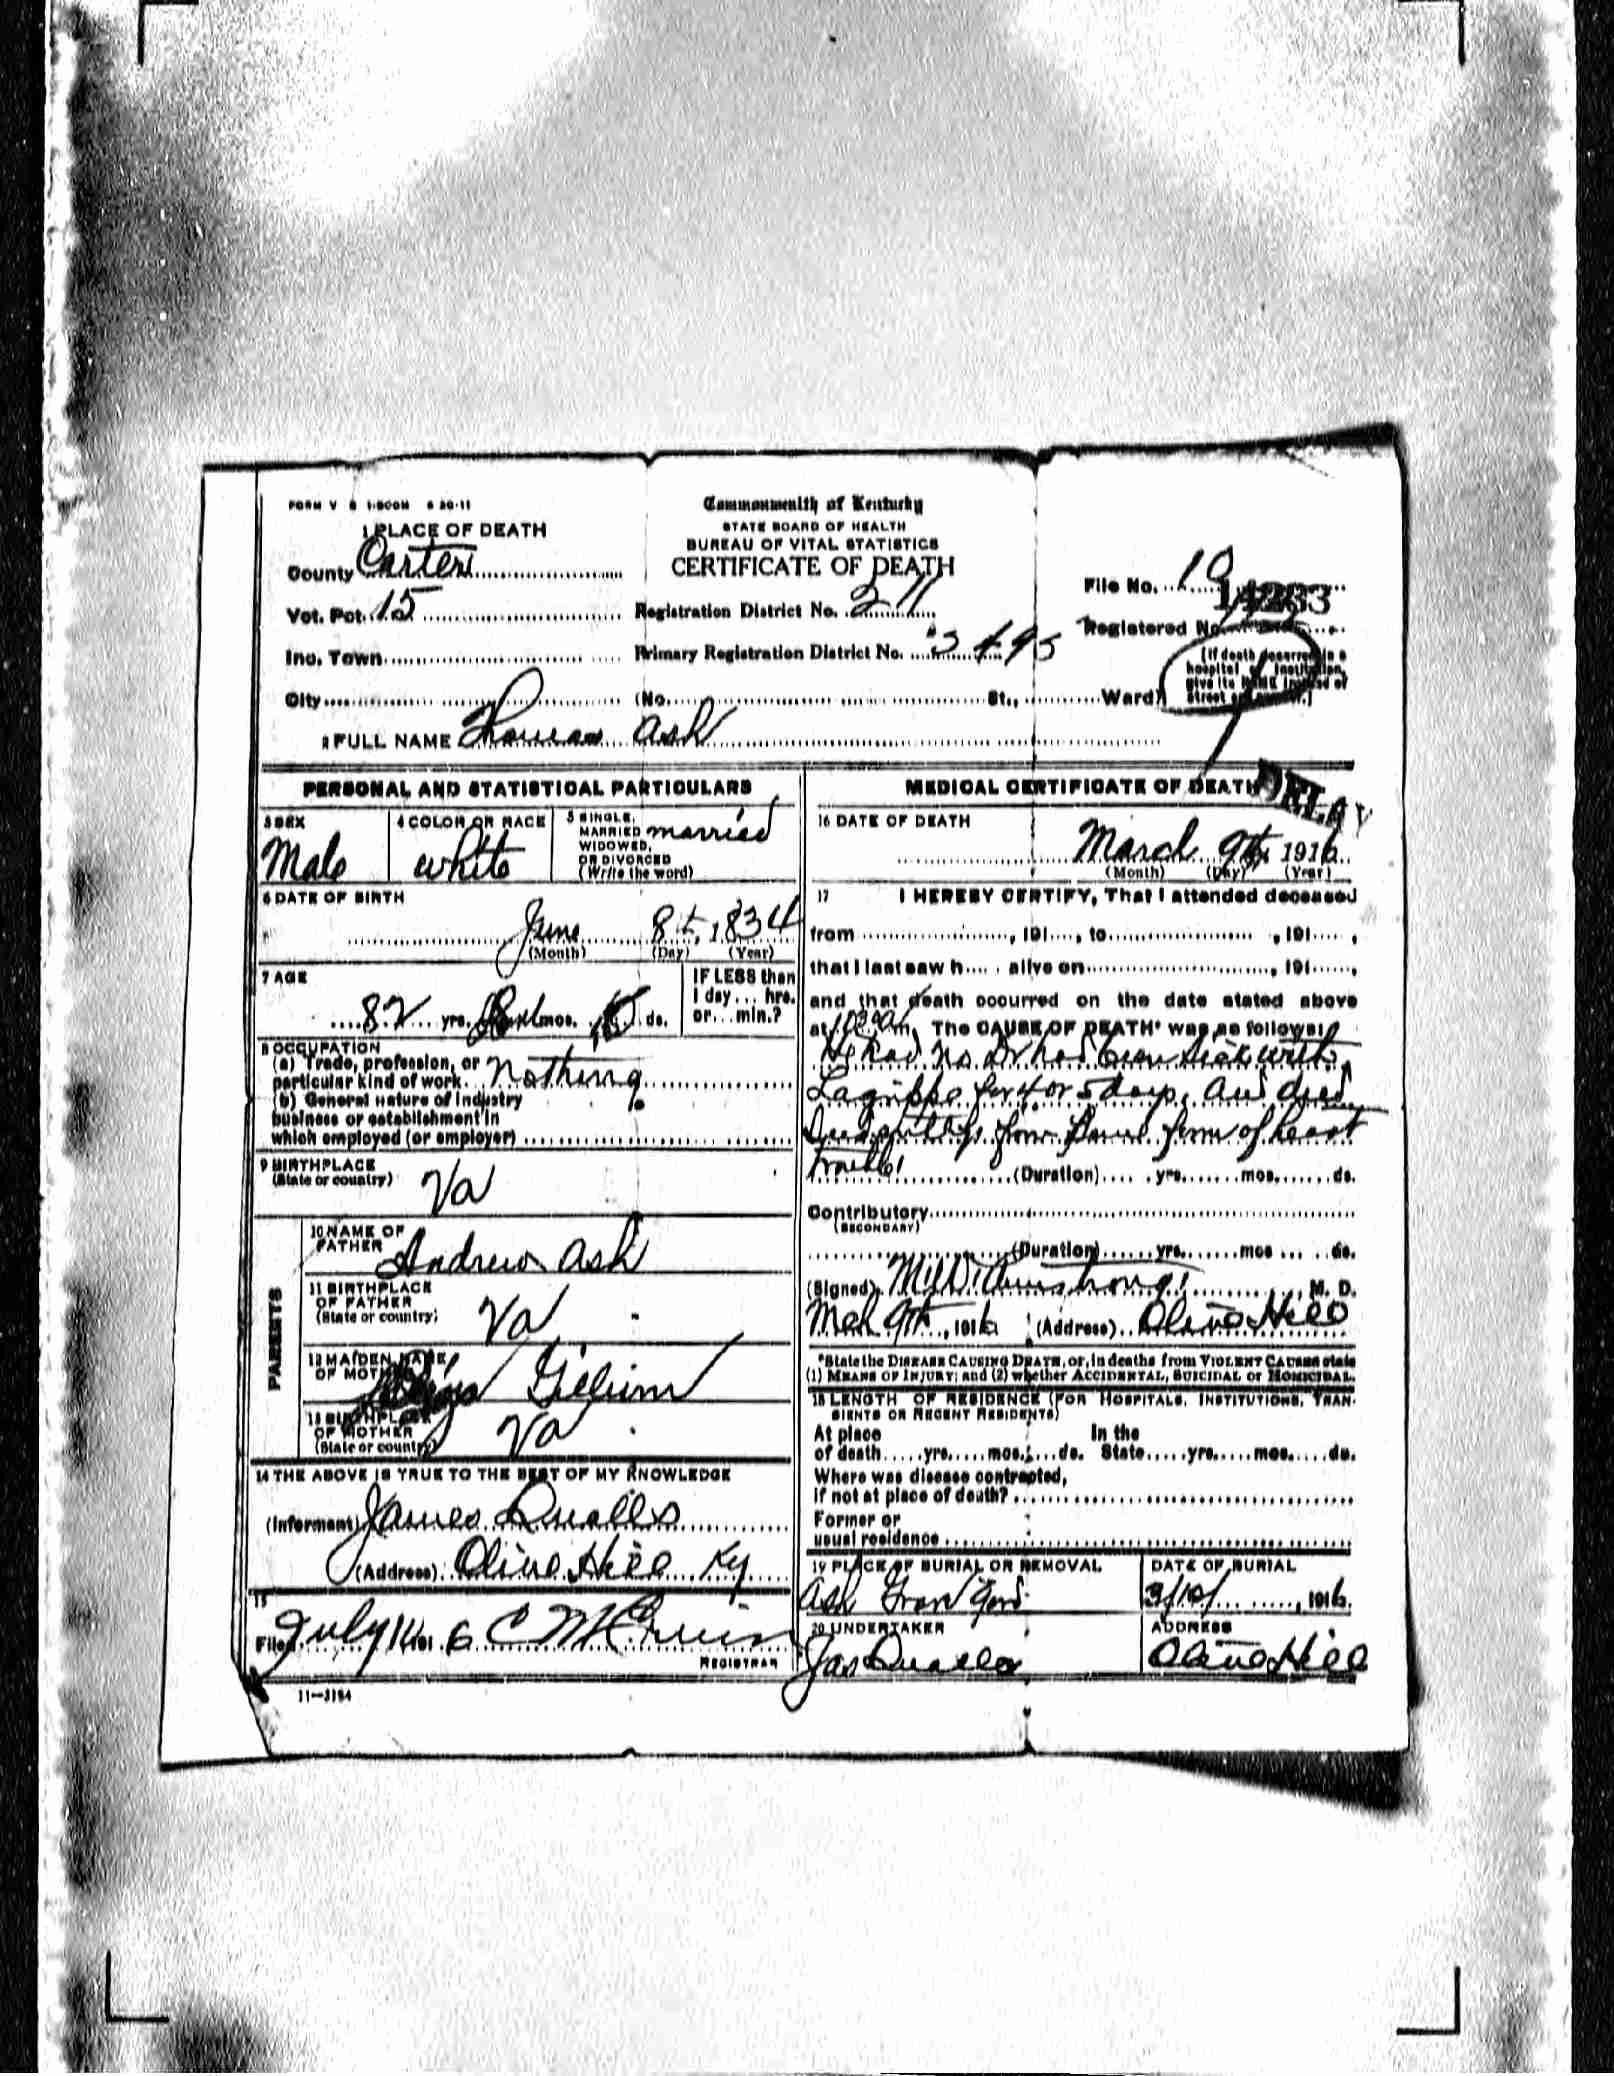 FORM V S 1-500M 6 20-11
Commonwealth of Kentucky
STATE BOARD OF HEALTH
BUREAU OF VITAL STATISTICS
CERTIFICATE OF DEATH
1 PLACE OF DEATH
County Carter
Vot. Pct. 15
Inc. Town
City
Registration District No. 211
Primary Registration District No.
(No. St., Ward)
File No. 10
Registered No.
[If death occurred in a
hospital or institution,
give its NAME instead of
street and number.]
2 FULL NAME Thomas Ash
PERSONAL AND STATISTICAL PARTICULARS
3 SEX
Male
4 COLOR OR RACE
white
5 SINGLE,
MARRIED married
WIDOWED,
OR DIVORCED
(Write the word)
6 DATE OF BIRTH
June 8th, 1834
(Month) (Day) (Year)
7 AGE
82 yrs. mos. ds.
IF LESS than
1 day ... hrs.
or ... min.?
8 OCCUPATION
(a) Trade, profession, or
particular kind of work. Nothing
(b) General nature of industry
business or establishment in
which employed (or employer)
9 BIRTHPLACE
(State or country)
Va
PARENTS
10 NAME OF
FATHER Andrew Ash
11 BIRTHPLACE
OF FATHER
(State or country)
Va
12 MAIDEN NAME
OF MOTHER Gillium
13 BIRTHPLACE
OF MOTHER
(State or country)
Va
14 THE ABOVE IS TRUE TO THE BEST OF MY KNOWLEDGE
(Informant) James Qualls
(Address) Olive Hill Ky
15
Filed July 191 6 C M
REGISTRAR
11-3184
MEDICAL CERTIFICATE OF DEATH
DELAY
16 DATE OF DEATH
March 9th 1916
(Month) (Day) (Year)
17 I HEREBY CERTIFY, That I attended deceased
from , 191 , to , 191 ,
that I last saw h alive on , 191 ,
and that death occurred on the date stated above
at m. The CAUSE OF DEATH* was as follows:
He had no Dr had been sick with
Lagrippe for 4 or 5 days. and died
from some form of heart
trouble!
(Duration) yrs. mos. ds.
Contributory
(SECONDARY)
(Duration) yrs. mos. ds.
(Signed) Armstrong M. D.
Mch 9th, 1916 (Address) Olive Hill
*State the DISEASE CAUSING DEATH, or, in deaths from VIOLENT CAUSES state
(1) MEANS OF INJURY; and (2) whether ACCIDENTAL, SUICIDAL or HOMICIDAL.
18 LENGTH OF RESIDENCE (FOR HOSPITALS, INSTITUTIONS, TRAN-
SIENTS OR RECENT RESIDENTS)
At place In the
of death yrs. mos. ds. State yrs. mos. ds.
Where was disease contracted,
if not at place of death?
Former or
usual residence
19 PLACE OF BURIAL OR REMOVAL
Ash Grave Yard
DATE OF BURIAL
3/10/, 1916.
20 UNDERTAKER
Jas Qualls
ADDRESS
Olive Hill